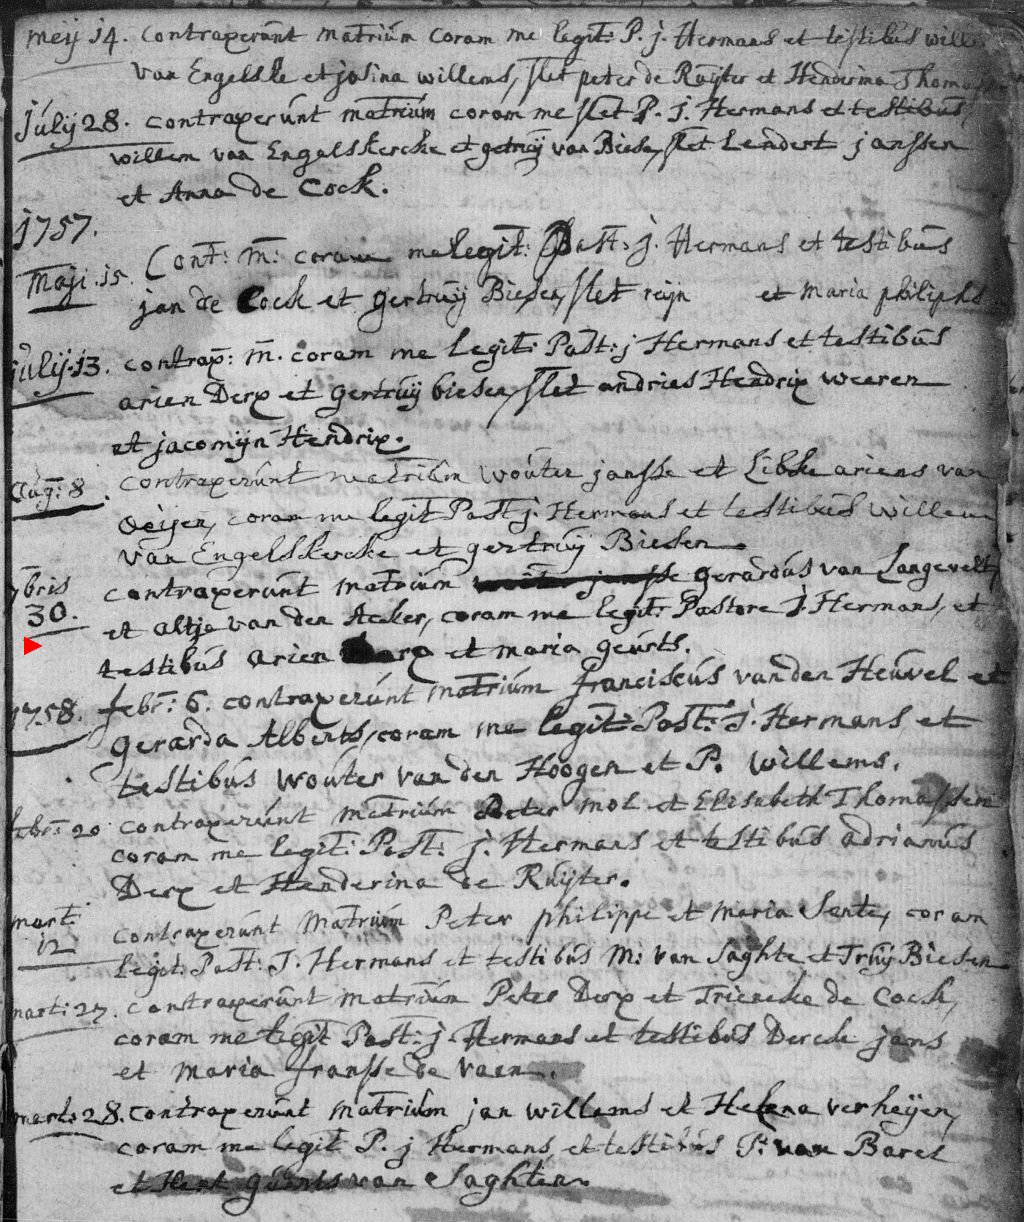 meij 14. contraxerunt matriūm coram me legit: P. j. Hermans et testibūs wille
van Engelske et josina willems, slet peter de Rūijter et Henderina Thomassen
jūlij 28. contraxerūnt matriūm coram me slet P. J. Hermans et testibūs,
willem van Engelskercke et getruij van Biese, slet Lendert janssen
et Anna de Cock.
1757.
Maji. 15. Cont: M: coram me legit: Past: j. Hermans et testibūs
jan de Cock et gertruij Biesen, slet reijn et Maria philiphs
jūlij. 13. contrax: M. coram me legit: Past: j Hermans et testibūs
arien Derx et gertruij biesen, slet andries Hendrix weeren
et jacomijn Hendrix.
Aūg: 8. contraxerūnt matriūm woūter jansse et Libke ariens van
oeijen, coram me legit Past j. Hermans et testibūs willem
van Engelskercke et gertruij Biesen
7bris 30. contraxerūnt matriūm gerardūs van Langevelt,
et altje van den Acker, coram me legit: Pastore J. Hermans, et
testibūs arien Derx et maria geūrts.
1758. febr: 6. contraxerūnt matriūm franciscūs van den Heūvel et
gerarda Alberts, coram me legit: Past: J. Hermans et
testibūs woūter van den Hoogen et P. willems.
febr: 20 contraxerūnt matriūm Peter mol et Elisabeth Thomassen
coram me legit: Past: j. Hermans et testibūs adrianūs
Derx et Henderina de Rūijter.
mart: 12 contraxerūnt Matriūm Peter philippe et maria Sente, coram
legit: Past: J. Hermans et testibūs M: van Saghte et Trūij Biesen
mart: 27. contraxerūnt matriūm Peter Derx et Triencke de Cock,
coram me legit Past: j. Hermans et testibūs Derck jans
et maria fransse de vaen.
mart: 28. contraxerūnt matriūm jan willems et Helena verheijen,
coram me legit P. j Hermans, et testibūs P: van Barel
et Hent gūerts van Saghten.